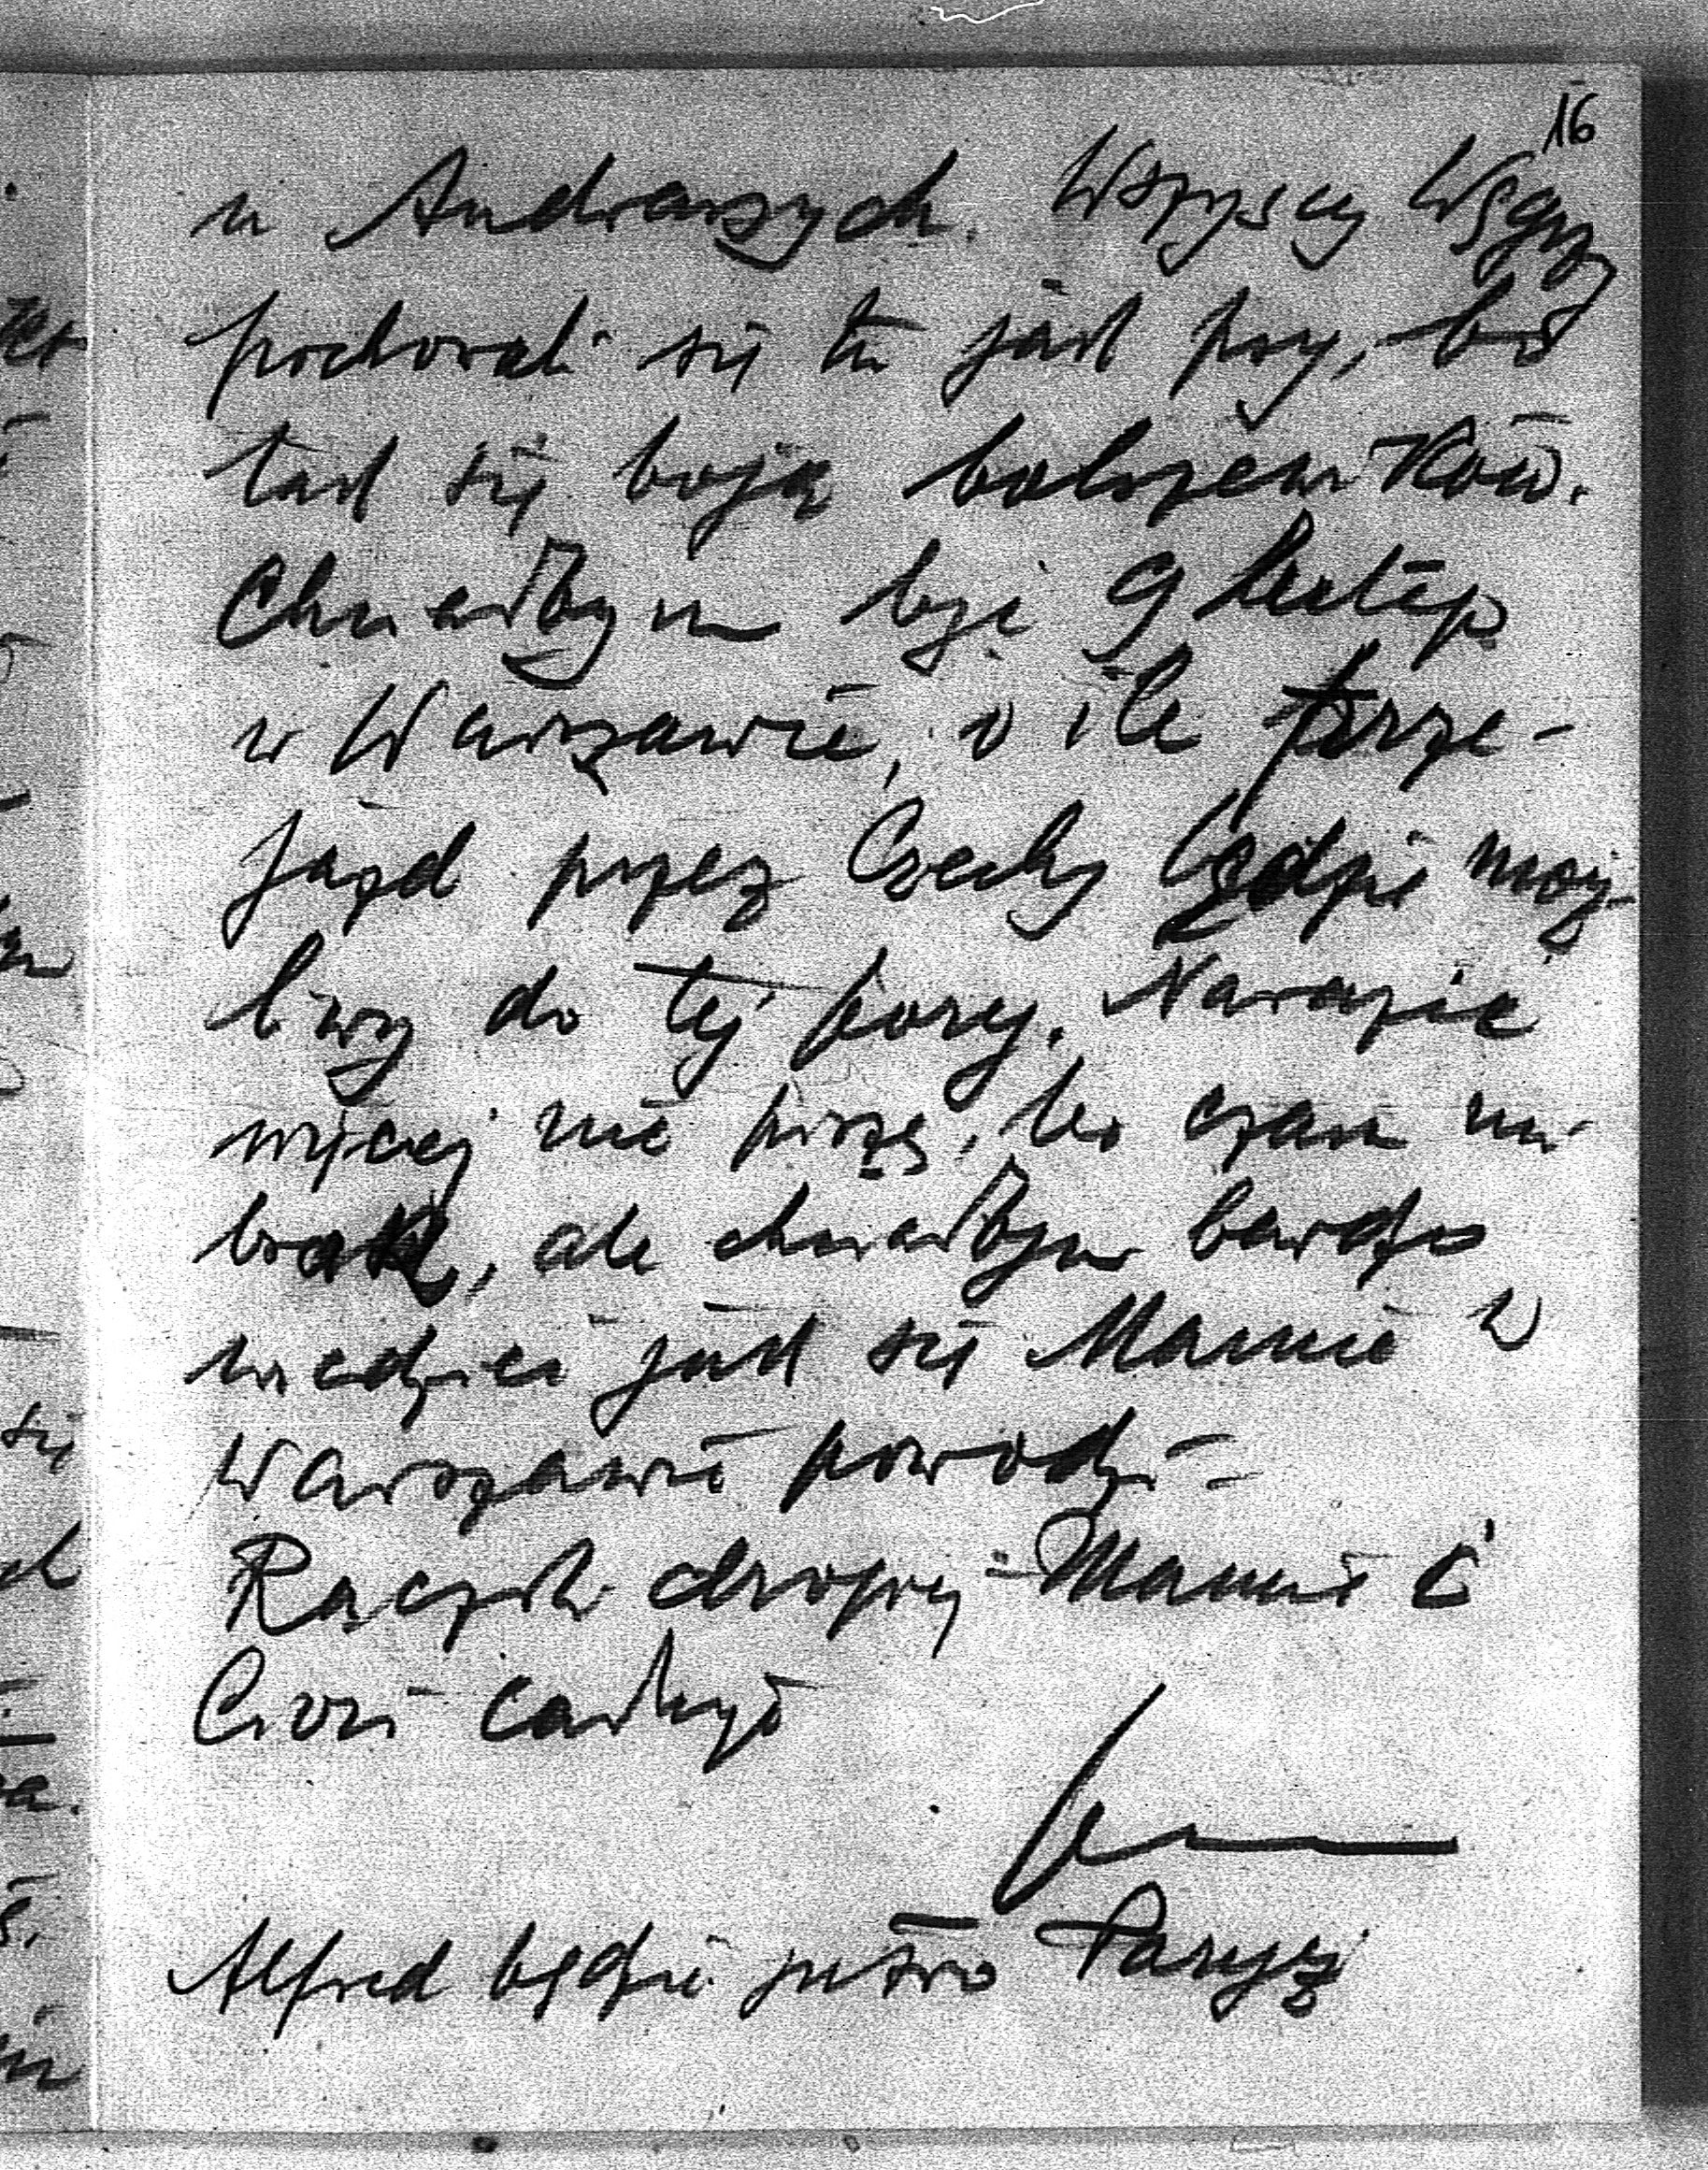 16
u Andraszych. Wszyscy Węgrzy
pochowali się tu jak psy, bo
tak się boją bolszewików.
Chciałbym być 9
w Warszawie, o ile prze-
jazd przez Czechy będzie moż-
liwy do tej pory. Narazie
więcej nie piszę, bo czasu mi
brak, ale chciałbym bardzo
wiedzieć jak się Mamie w
Warszawie powodzi -
Rączki drogiej Mamie i
Cioci całuję
Alfred będzie jutro Paryż